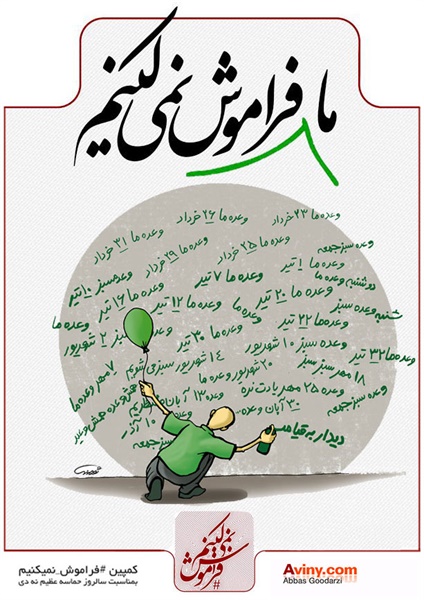 ما فراموش نمی کنیم
وعده ما ۲۳ خرداد
وعده ما ۲۶ خرداد
وعده ما ۳۱ خرداد
وعده ما ۲۵ خرداد
وعده سبز جمعه
وعده ما ۲۹ خرداد
وعده ما ۱ تیر
دوشنبه وعده ما
وعده ما ۷ تیر
وعده سبز ۱۰ تیر
شنبه وعده سبز
وعده ما ۲۰ تیر
وعده ما ۱۲ تیر
وعده ما ۱۶ تیر
وعده ما
وعده ما ۲۲ تیر
وعده ما
وعده سبز ۲ شهریور
وعده ما ۳۲ تیر
وعده سبز ۱۰ شهریور
وعده ما ۳۰ تیر
۱۸ مهر سبز سبز
۲۰ شهریور وعده ما
۱۴ شهریور سبز می شویم
۷ مهر وعده ما
وعده سبز جمعه
وعده ۲۵ مهر یادت نره
وعده ۱۳ آبان
۳۰ آبان وعده
۱۰ آذر
وعده سبز جمعه
دیدار به قیامت
#فراموش نمی کنیم
کمپین #فراموش_نمیکنیم
بمناسبت سالروز حماسه عظیم نه دی
Aviny.com
Abbas Goodarzi